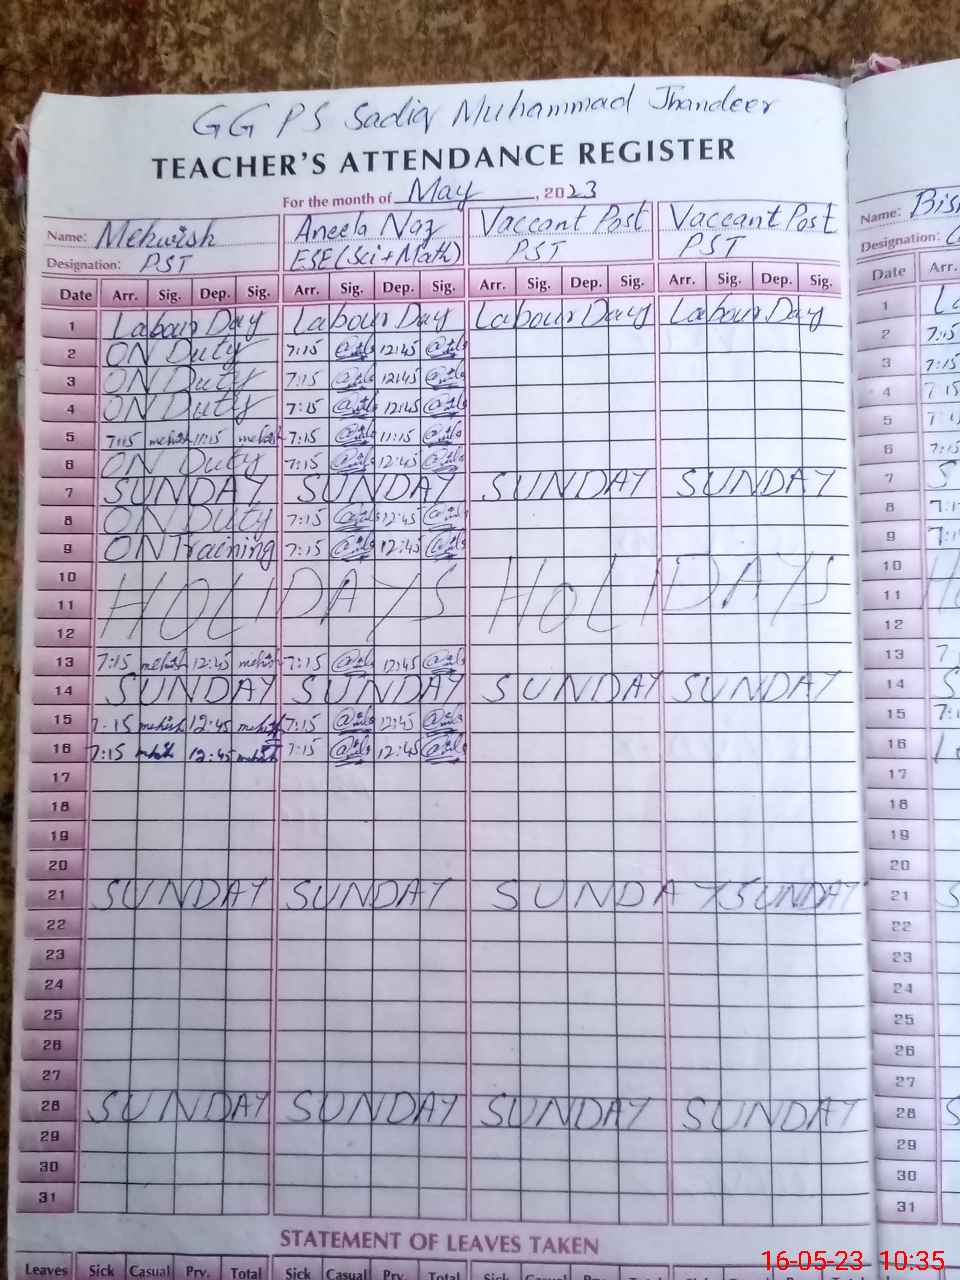 GGPS Sadiq Muhammad Jhandeer
TEACHER'S ATTENDANCE REGISTER
For the month of May, 2023
Name: Mehwish Aneela Naz Vaccant Post Vaccant Post Name:
Designation: PST ESE (Sci + Math) PST PST Designation:
Date Arr. Sig. Dep. Sig. Arr. Sig. Dep. Sig. Arr. Sig. Dep. Sig. Arr. Sig. Dep. Sig. Date Arr.
1 Labour Day Labour Day Labour Day Labour Day 1
2 ON Duty 7:15 12:45 2 7:15
3 ON Duty 7:15 12:45 3 7:15
4 ON Duty 7:15 12:45 4 7:15
5 7:15 11:15 7:15 11:15 5
6 ON Duty 7:15 12:45 6 7:15
7 SUNDAY SUNDAY SUNDAY SUNDAY 7 S
8 ON Duty 7:15 12:45 8
9 ON Training 7:15 12:45 9
10 10
11 HOLIDAYS HOLIDAYS 11
12 12
13 7:15 12:45 7:15 12:45 13 7
14 SUNDAY SUNDAY SUNDAY SUNDAY 14 S
15 7:15 12:45 7:15 12:45 15
16 7:15 12:45 7:15 12:45 16
17 17
18 18
19 19
20 20
21 SUNDAY SUNDAY SUNDAY SUNDAY 21 S
22 22
23 23
24 24
25 25
26 26
27 27
28 SUNDAY SUNDAY SUNDAY SUNDAY 28 S
29 29
30 30
31 31
STATEMENT OF LEAVES TAKEN
Leaves Sick Casual Prv. Total Sick Casual Prv. Total Sick Casual Prv.
16-05-23 10:35